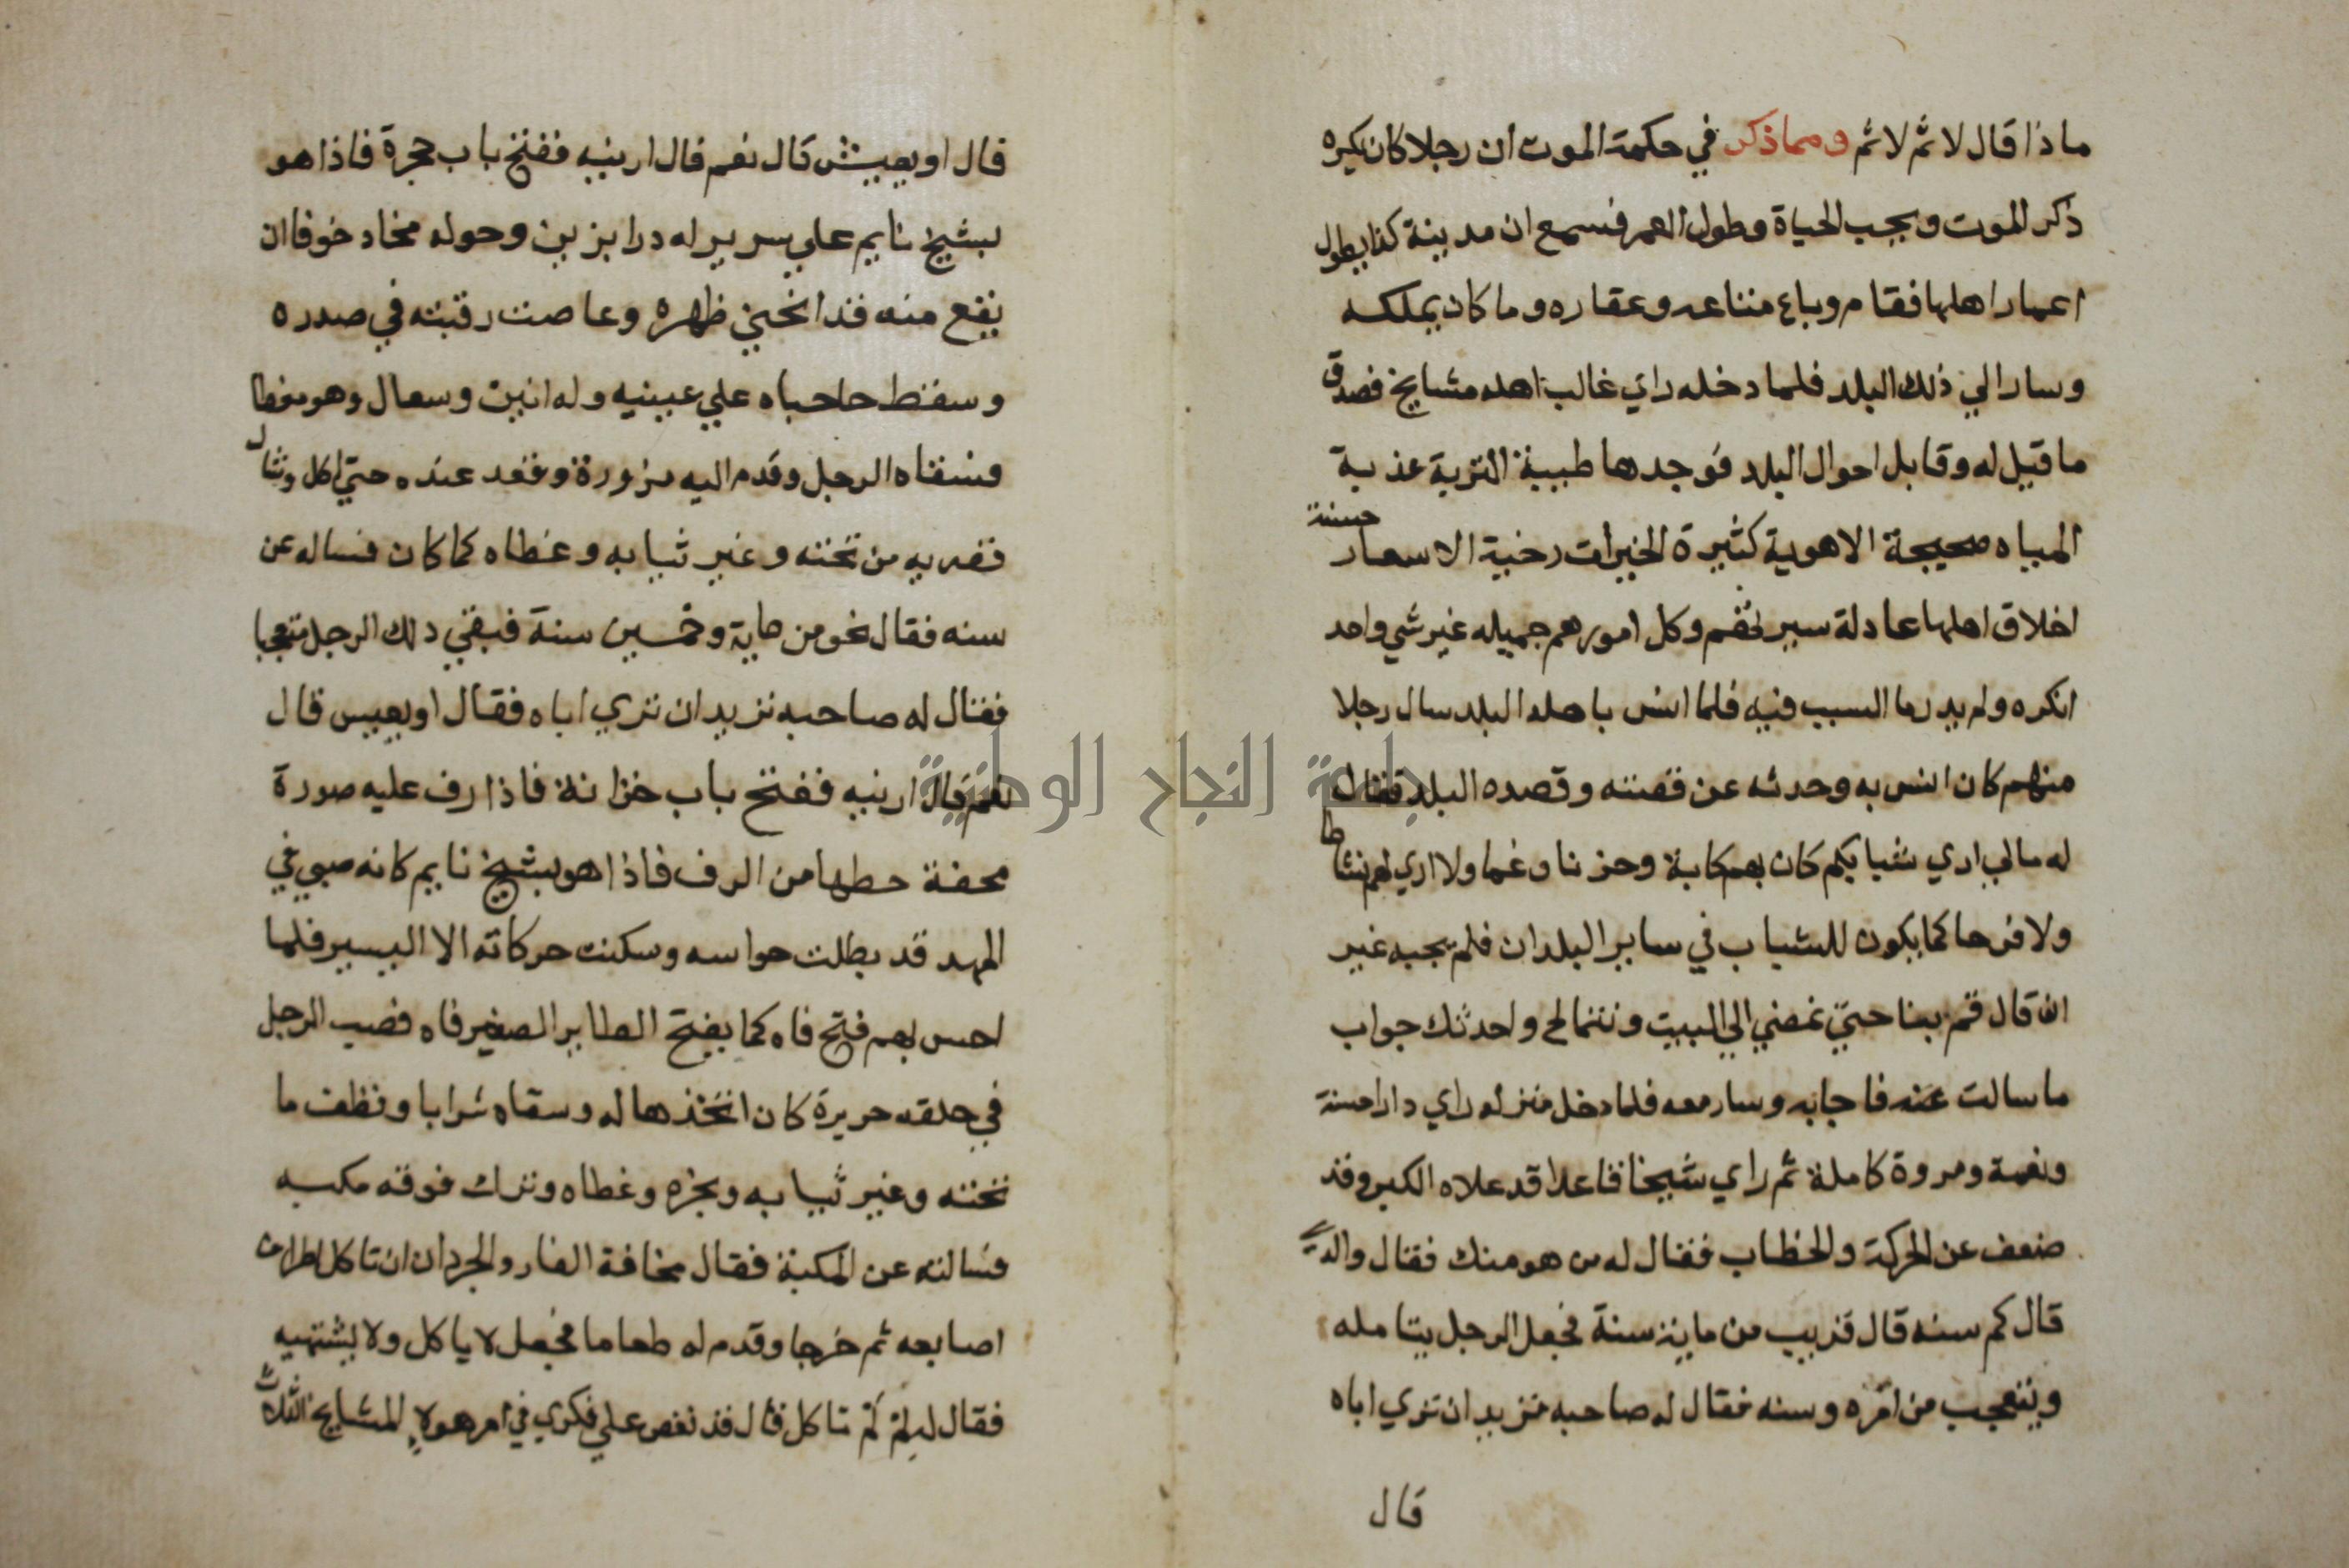 ماذا قال لا ثم لا ثم ومما ذكر في حكمة الموت ان رجلا كان يكره
ذكر الموت ويحب الحياة وطول العمر فسمع ان مدينة كذا يطول
اعمار اهلها فقام وباع متاعه وعقاره وما كان يملكه
وسار الي ذلك البلد فلما دخله راي غالب اهله مشايخ فصدق
ما قيل له وقابل احوال البلد فوجدها طيبة التربة عذبة
المياه صحيحة الاهوية كثيرة الخيرات رخية الاسعار حسنة
اخلاق اهلها عادلة سيرتهم وكل امورهم جميله غير شي واحد
انكره ولم يدر ما السبب فيه فلما انس باهل البلد سال رجلا
منهم كان انس به وحدثه عن قصته وقصده البلد فقال
له مالي اري شبابكم كان بهم كابة وحزنا وغما ولا اري لهم نشاطا
ولا فرحا كما يكون للشباب في ساير البلدان فلم يجبه غير
ان قال قم بنا حتي نمضي الي البيت ونتمالح واحدثك جواب
ما سالت عنه فاجابه وسار معه فلما دخل منزله راي دارا حسنة
ونعمة ومروة كاملة ثم راي شيخا قاعدا قد علاه الكبر وقد
ضعف عن الحركة والخطاب فقال له من هو منك فقال والدي
قال كم سنه قال قريب من ماية سنة فجعل الرجل يتامله
ويتعجب من امره وسنه فقال له صاحبه تريد ان تري اباه
قال
قال او يعيش قال نعم قال ارينيه ففتح باب حجرة فاذا هو
بشيخ نايم علي سرير له درابزين وحوله مخاد خوفا ان
يقع منه قد انحني ظهره وغاصت رقبته في صدره
وسقط حاجباه علي عينيه وله انين وسعال وهو مغطا
فسقاه الرجل وقدم اليه مزورة وقعد عنده حتي اكل وشال
قصريه من تحته وغير ثيابه وغطاه كما كان فساله عن
سنه فقال نحو من ماية وخمسين سنة فبقي ذلك الرجل متعجبا
فقال له صاحبه تريد ان تري اباه فقال او يعيش قال
نعم قال ارينيه ففتح باب خزانة فاذا رف عليه صورة
محفة حطها من الرف فاذا هو بشيخ نايم كانه صبي في
المهد قد بطلت حواسه وسكنت حركاته الا اليسير فلما
احس بهم فتح فاه كما يفتح الطاير الصغير فاه فصب الرجل
في حلقه حريرة كان اتخذها له وسقاه شرابا ونظف ما
تحته وغير ثيابه وبخره وغطاه وترك فوقه مكبه
فسالته عن المكبة فقال مخافة الفار والجردان ان تاكل اطراف
اصابعه ثم خرجا وقدم له طعاما فجعل لا ياكل ولا يشتهيه
فقال له لم لم تاكل قال قد نغص علي فكري في امر هولاء المشايخ الثلاث
جامعة النجاح الوطنية